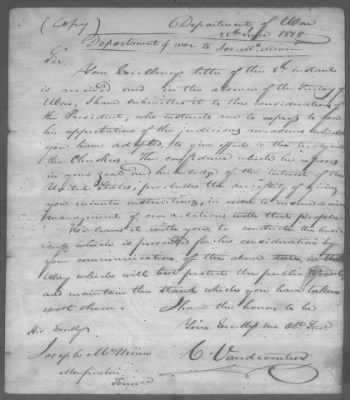 (Copy) Department of War
Department of war to Jos. McMinn
Sir,
Your Excellency's letter of the 8th instant
is received and in the absence of the Secretary of
War, I have submitted it to the consideration of
the President, who instructs me to express to you
his approbation of the judicious measures which
you have adopted, to give effect to the treaty with
the Cherokees. The confidence which he reposes
in your zeal and knowledge of the interest of the
United States, precludes the necessity of giving
you minute instructions, in order to
management of our relations with that people.
He leaves it with you to
which is presented for his consideration by
your communication of the above date, in the
way which will best protect the public
and maintain the stand which you have taken
I have the honor to be
His Excelly Your Excelly's mo. Obt. Servt
Joseph McMinn C. Vandeventer
Murfreesboro
Tennessee